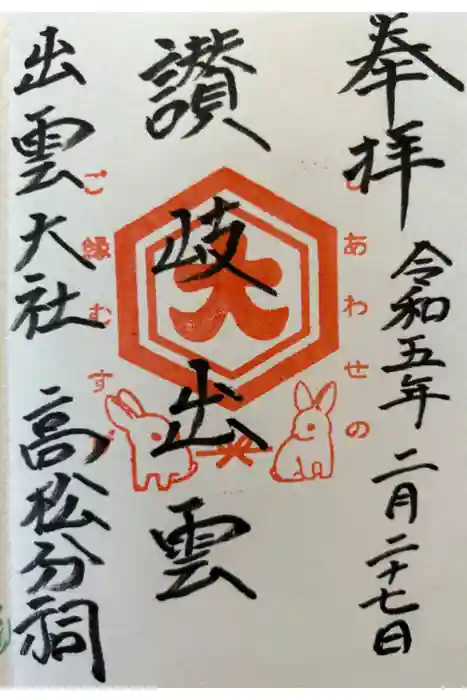 奉拝
令和五年二月二十七日
しあわせの
讃岐出雲
大
ご縁むすび
出雲大社 高松分祠